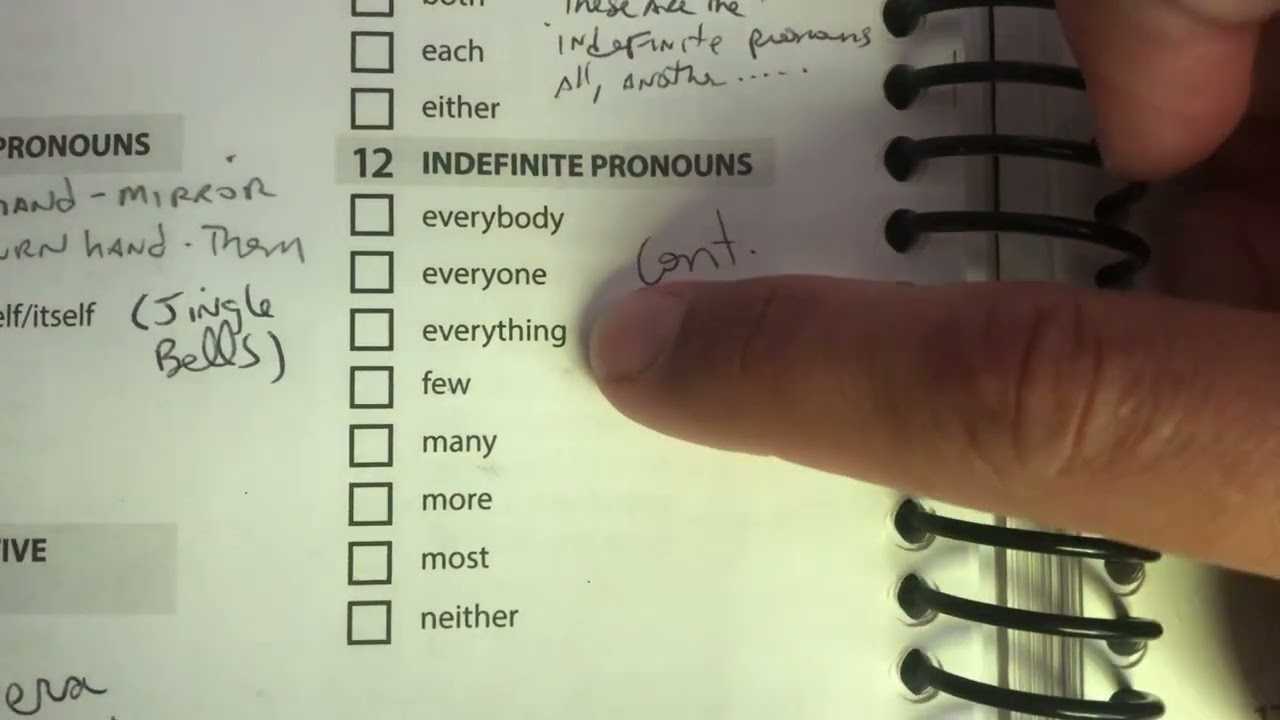 both
These Are The
each
indefinite pronouns
All, Another.....
either
PRONOUNS
HAND - MIRROR
URN hAND. Them
elf/itself (Jingle
Bells)
12 INDEFINITE PRONOUNS
everybody
Cont.
everyone
everything
few
many
more
most
neither
IVE
era